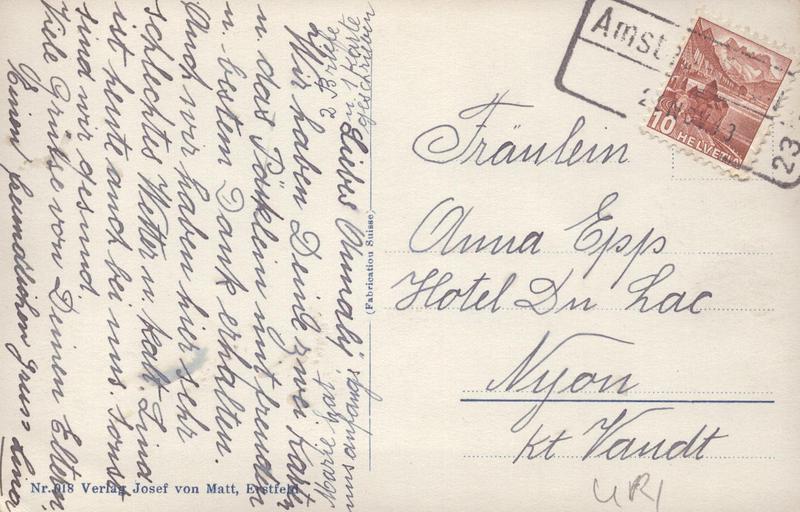 Liebes Annali,
Wir haben Deine zwei Karten
u das Päcklein mit Freuden
u. bestem Dank erhalten.
Auch wir haben hier sehr
schlechtes Wetter u. kalt. Lina
ist heute auch bei uns. Sonst
sind wir gesund
Viele Grüsse von Deinen Eltern
Einen freundlichen Gruss Lina
Marie hat
uns anfangs
2 Briefe
u 1 Karte
geschrieben
(Fabrication Suisse)
Nr. 918 Verlag Josef von Matt, Erstfeld
Amst
23
10 HELVETIA
Fräulein
Anna Epp
Hotel Du Lac
Nyon
Kt Vaudt
URI